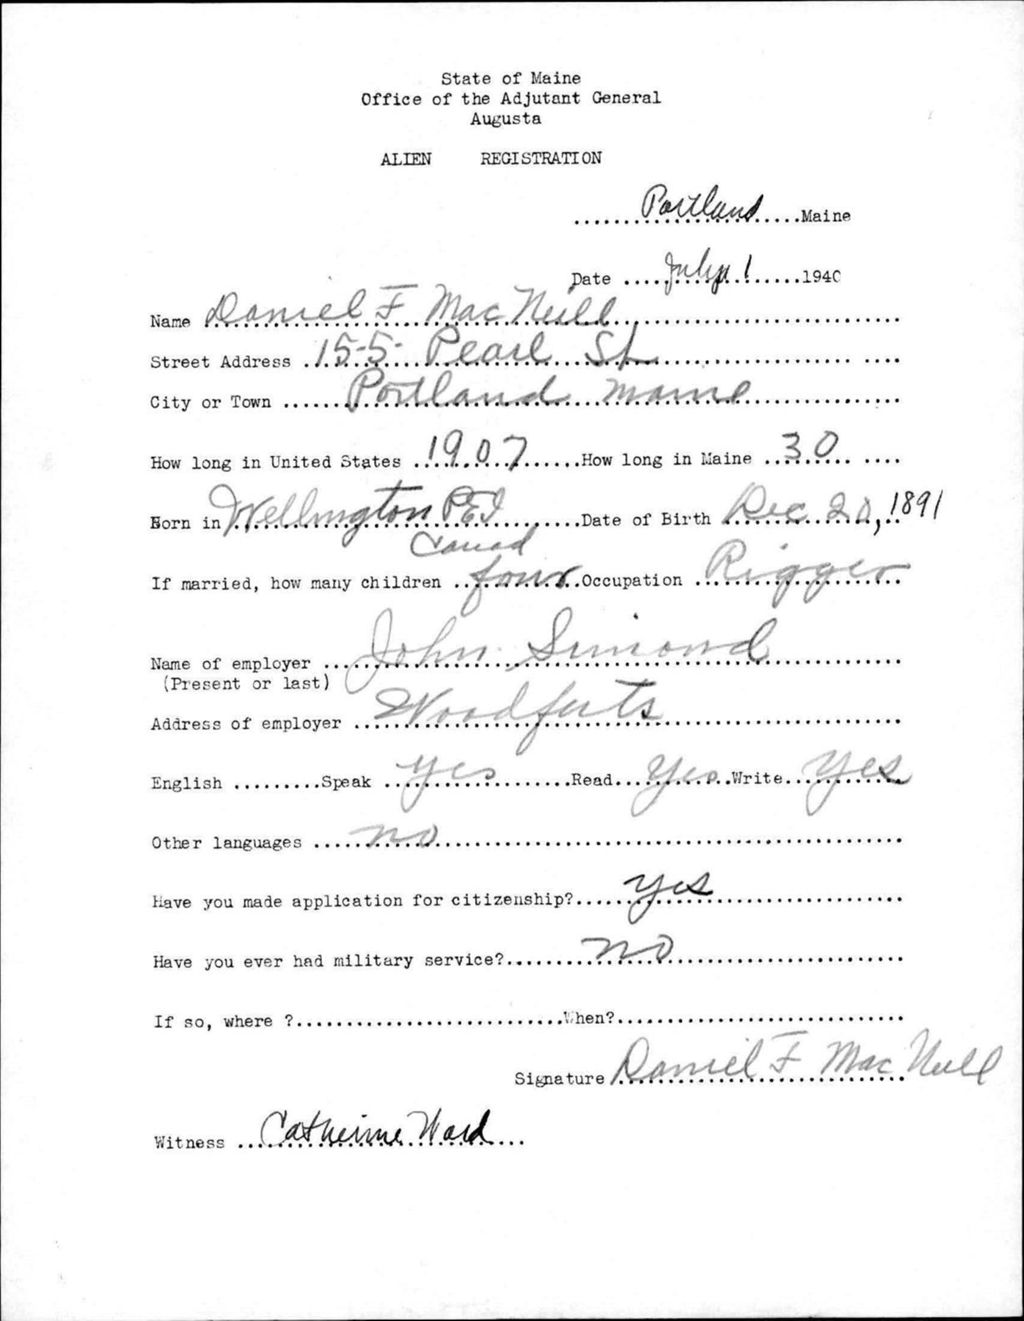 State of Maine
Office of the Adjutant General
Augusta
ALIEN REGISTRATION
Portland Maine
Date July 1 1940
Name Daniel F MacNeill
Street Address 155 Pearl St
City or Town Portland Maine
How long in United States 1907 How long in Maine 30
Born in Wellington PEI Date of Birth Dec 20, 1891
Canad
If married, how many children four Occupation Rigger
Name of employer John Simond
(Present or last)
Address of employer Woodfuts
English Speak yes Read Yes Write Yes
Other languages no
Have you made application for citizenship? Yes
Have you ever had military service? no
If so, where ? When?
Signature Daniel F MacNeill
Witness Catherine Ward